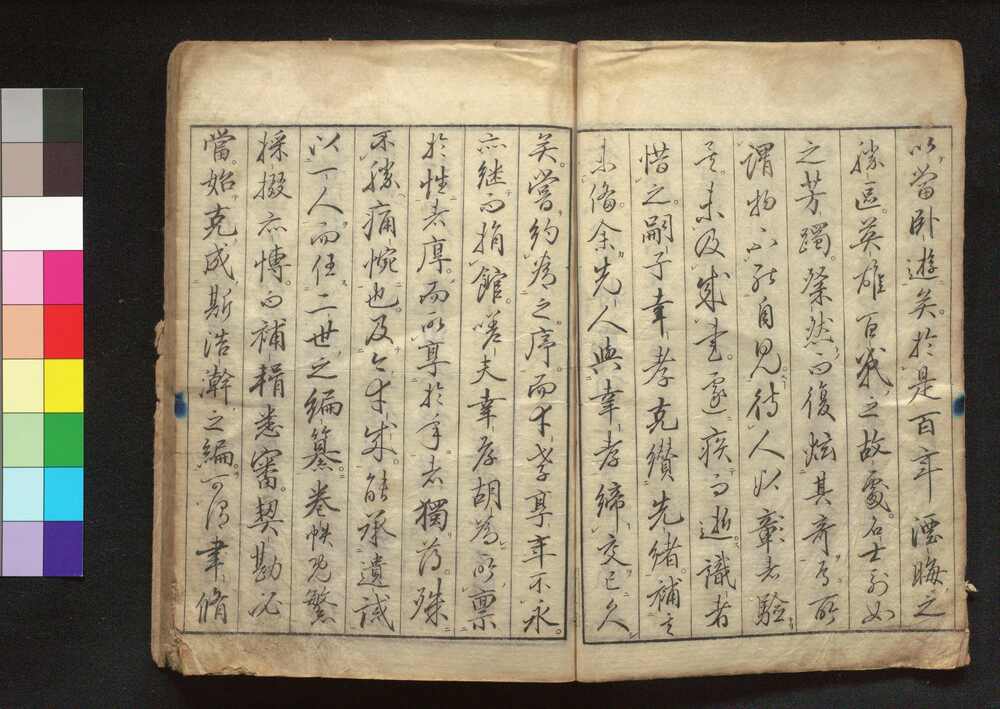 以當臥遊矣。於是百年湮晦之
勝區。英雄百戰之故處。名士列女
之芳躅。粲然而復炫其奇焉。所
謂物不能自見。待人以彰者驗
矣。未及成書。遽疾而逝。識者
惜之。嗣子幸孝克纘先緒。補其
未備。余先人與幸孝締交已久
矣。嘗約為之序。而幸孝享年不永。
亦継而捐館。嗟夫幸孝胡為所稟
於性者厚。而所享於年者獨薄。殊
不勝痛惋也。及今幸成能承遺誡
以一人而任二世之編纂。卷帙既繁
採掇亦博。而補輯悉審。契勘必
當。始克成斯浩瀚之編。可謂聿脩